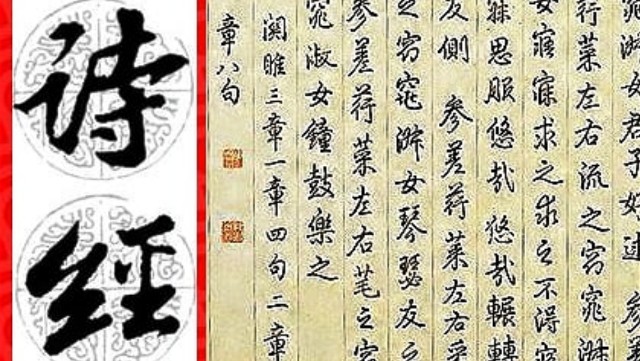 诗经
窕淑女君子好逑 參
荇菜左右流之窈窕淑
女寤寐求之求之不得寤
寐思服悠哉悠哉輾轉
反側 參差荇菜左右采
之窈窕淑女琴瑟友之
參差荇菜左右芼之窈
窕淑女鐘鼓樂之
關雎三章一章四句二章
章八句